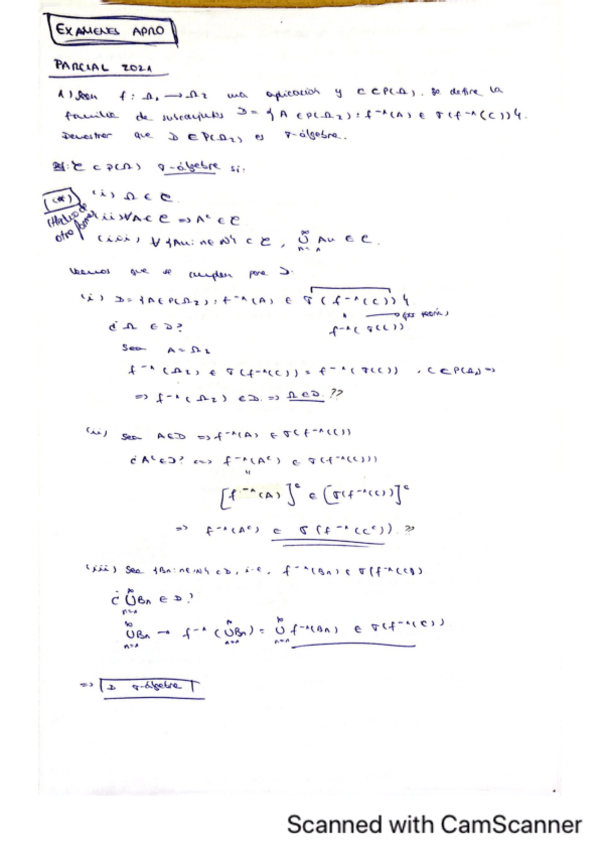 EXAMENES APRO
PARCIAL 2021
1) Sea f: Ω₁ → Ω₂ una aplicación y C ∈ P(Ω₂). Se define la
familia de subconjuntos D = {A ∈ P(Ω₂): f⁻¹(A) ∈ σ(f⁻¹(C))}.
Demostrar que D ∈ P(Ω₂) es σ-álgebra.
C ⊂ P(Ω) σ-álgebra si:
(*) (i) Ω ∈ C.
(Hecho de otra forma) (ii) ∀A ∈ C => Aᶜ ∈ C
(iii) ∀ {An: n ∈ N} ⊂ C, ∞ ∪ n=1 An ∈ C.
Veamos que se cumplen para D:
(i) D = {A ∈ P(Ω₂): f⁻¹(A) ∈ σ(f⁻¹(C))}
f⁻¹(σ(C)) (por teoría)
¿Ω ∈ D?
Sea A = Ω₂
f⁻¹(Ω₂) ∈ σ(f⁻¹(C)) = f⁻¹(σ(C)), C ∈ P(Ω₂) =>
=> f⁻¹(Ω₂) ∈ D => Ω ∈ D. ??
(ii) Sea A ∈ D => f⁻¹(A) ∈ σ(f⁻¹(C))
¿Aᶜ ∈ D? <=> f⁻¹(Aᶜ) ∈ σ(f⁻¹(C)))
[f⁻¹(A)]ᶜ ∈ [σ(f⁻¹(C))]ᶜ
=> f⁻¹(Aᶜ) ∈ σ(f⁻¹(Cᶜ)). ??
(iii) Sea {Bn: n ∈ N} ∈ D, i.e. f⁻¹(Bn) ∈ σ(f⁻¹(C))
¿∞ ∪ n=1 Bn ∈ D?
∞ ∪ n=1 Bn → f⁻¹(∞ ∪ n=1 Bn) = ∞ ∪ n=1 f⁻¹(Bn) ∈ σ(f⁻¹(C))
=> D σ-álgebra
Scanned with CamScanner